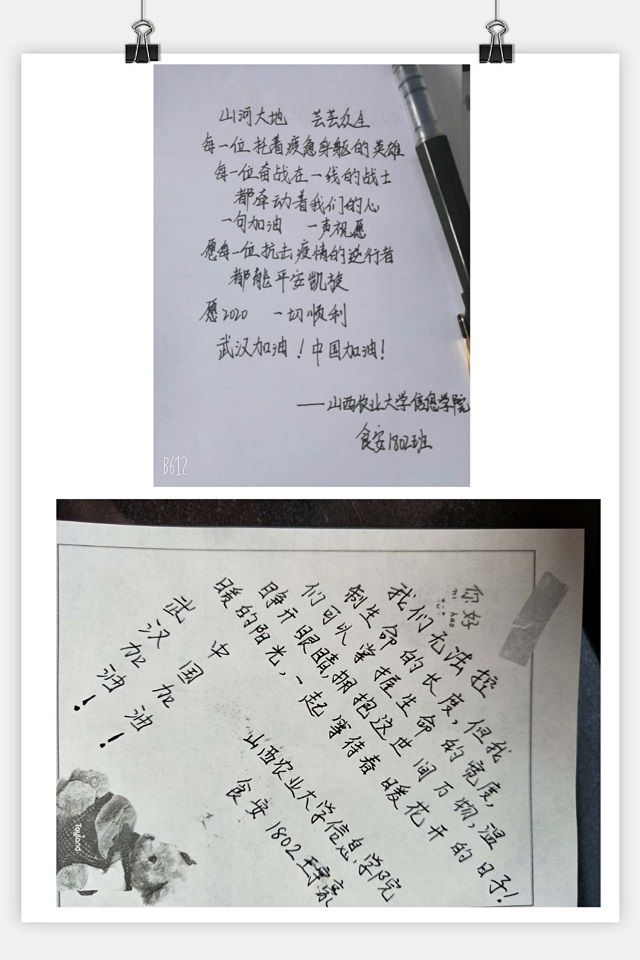 山河大地 芸芸众生
每一位托着疲惫身躯的英雄
每一位奋战在一线的战士
都牵动着我们的心
一句加油 一声祝愿
愿每一位抗击疫情的逆行者
都能平安凯旋
愿2020 一切顺利
武汉加油！中国加油！
——山西农业大学信息学院
食安1802班
B612
你好
ni hao
我们无法控
制生命的长度，但我
们可以掌握生命的宽度，
睁开眼睛，拥抱这世间万物，温
暖的阳光，一起等待春暖花开的日子！
武汉加油！
中国加油！
山西农业大学信息学院
食安1802
Toyland